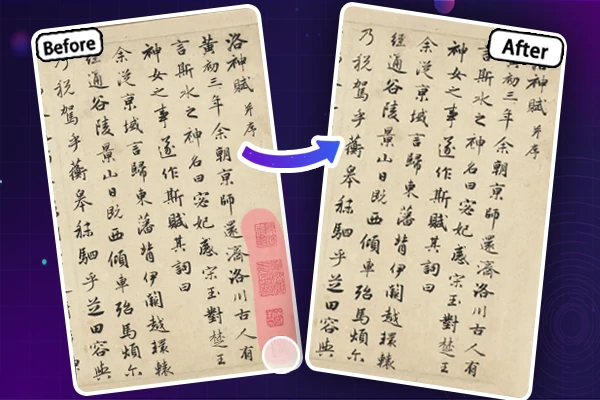 Before
洛神賦 并序
黃初三年余朝京師還濟洛川古人有
言斯水之神名曰宓妃感宋玉對楚王
神女之事遂作斯賦其詞曰
余從京域言歸東藩背伊闕越環轅
經通谷陵景山日既西傾車殆馬煩尔
乃稅駕乎蘅皋秣駟乎芝田容與
After
神賦 并序
初三年余朝京師還濟洛川古人有
言斯水之神名曰宓妃感宋玉對楚王
神女之事遂作斯賦其詞曰
余從京域言歸東藩背伊闕越環轅
經通谷陵景山日既西傾車殆馬煩尔
乃稅駕乎蘅皋秣駟乎芝田容與